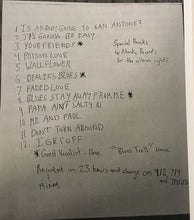 1 IS ANYBODY GOING TO SAN ANTONE?
2. IT'S GONNA BE EASY
3 YOUR FRIENDS *
4 POISON LOVE
5 WALLFLOWER
6 DEALERS BLUES *
7 FADED LOVE
8 BLUES STAY AWAY FROM ME *
9 PAPA AIN'T SALTY
10 ME AND PAUL
11 DON'T TURN AROUND
12. I GET OFF
Special thanks
to Atlantic Records
for the album rights
* Guest Vocalist - Dave "Blues Tail"
Recorded in 23 hours and change on 9/2, 7/9
and
Mixed